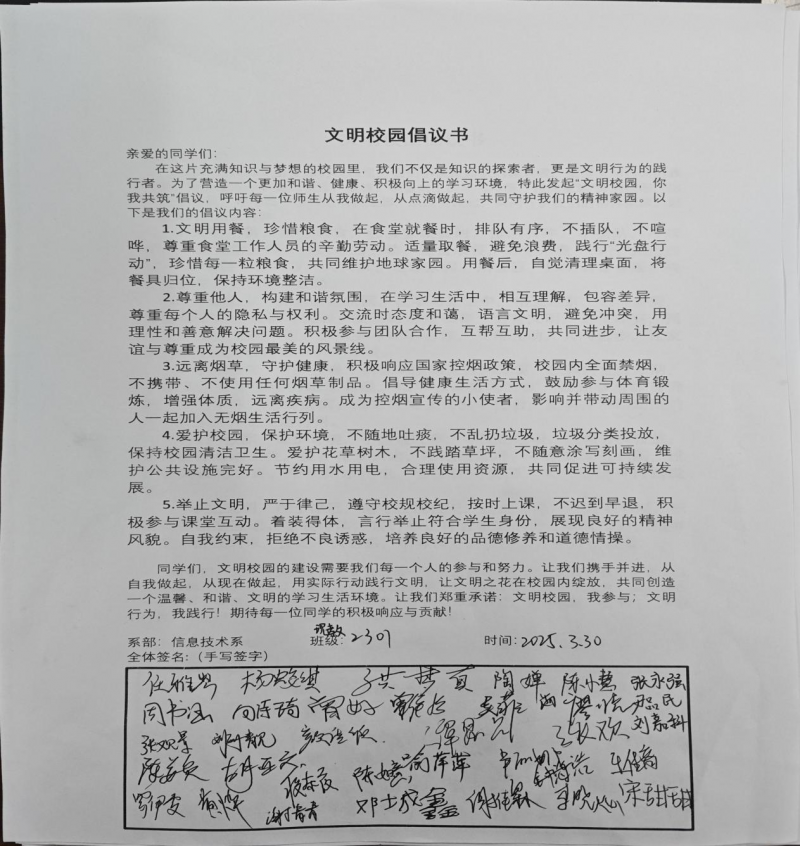 文明校园倡议书
亲爱的同学们：
在这片充满知识与梦想的校园里，我们不仅是知识的探索者，更是文明行为的践
行者。为了营造一个更加和谐、健康、积极向上的学习环境，特此发起“文明校园，你
我共筑”倡议，呼吁每一位师生从我做起，从点滴做起，共同守护我们的精神家园。以
下是我们的倡议内容：
1.文明用餐，珍惜粮食，在食堂就餐时，排队有序，不插队，不喧
哗，尊重食堂工作人员的辛勤劳动。适量取餐，避免浪费，践行“光盘行
动”，珍惜每一粒粮食，共同维护地球家园。用餐后，自觉清理桌面，将
餐具归位，保持环境整洁。
2.尊重他人，构建和谐氛围，在学习生活中，相互理解，包容差异，
尊重每个人的隐私与权利。交流时态度和蔼，语言文明，避免冲突，用
理性和善意解决问题。积极参与团队合作，互帮互助，共同进步，让友
谊与尊重成为校园最美的风景线。
3.远离烟草，守护健康，积极响应国家控烟政策，校园内全面禁烟，
不携带、不使用任何烟草制品。倡导健康生活方式，鼓励参与体育锻
炼，增强体质，远离疾病。成为控烟宣传的小使者，影响并带动周围的
人一起加入无烟生活行列。
4.爱护校园，保护环境，不随地吐痰，不乱扔垃圾，垃圾分类投放，
保持校园清洁卫生。爱护花草树木，不践踏草坪，不随意涂写刻画，维
护公共设施完好。节约用水用电，合理使用资源，共同促进可持续发
展。
5.举止文明，严于律己，遵守校规校纪，按时上课，不迟到早退，积
极参与课堂互动。着装得体，言行举止符合学生身份，展现良好的精神
风貌。自我约束，拒绝不良诱惑，培养良好的品德修养和道德情操。
同学们，文明校园的建设需要我们每一个人的参与和努力。让我们携手并进，从
自我做起，从现在做起，用实际行动践行文明，让文明之花在校园内绽放，共同创造
一个温馨、和谐、文明的学习生活环境。让我们郑重承诺：文明校园，我参与；文明
行为，我践行！期待每一位同学的积极响应与贡献！
系部：信息技术系 班级：2301 时间：2025.3.30
全体签名：（手写签字）
陶婵 陈小慧 张永强
周书涵
王欢欢
陈嫔
邓士成 鑫